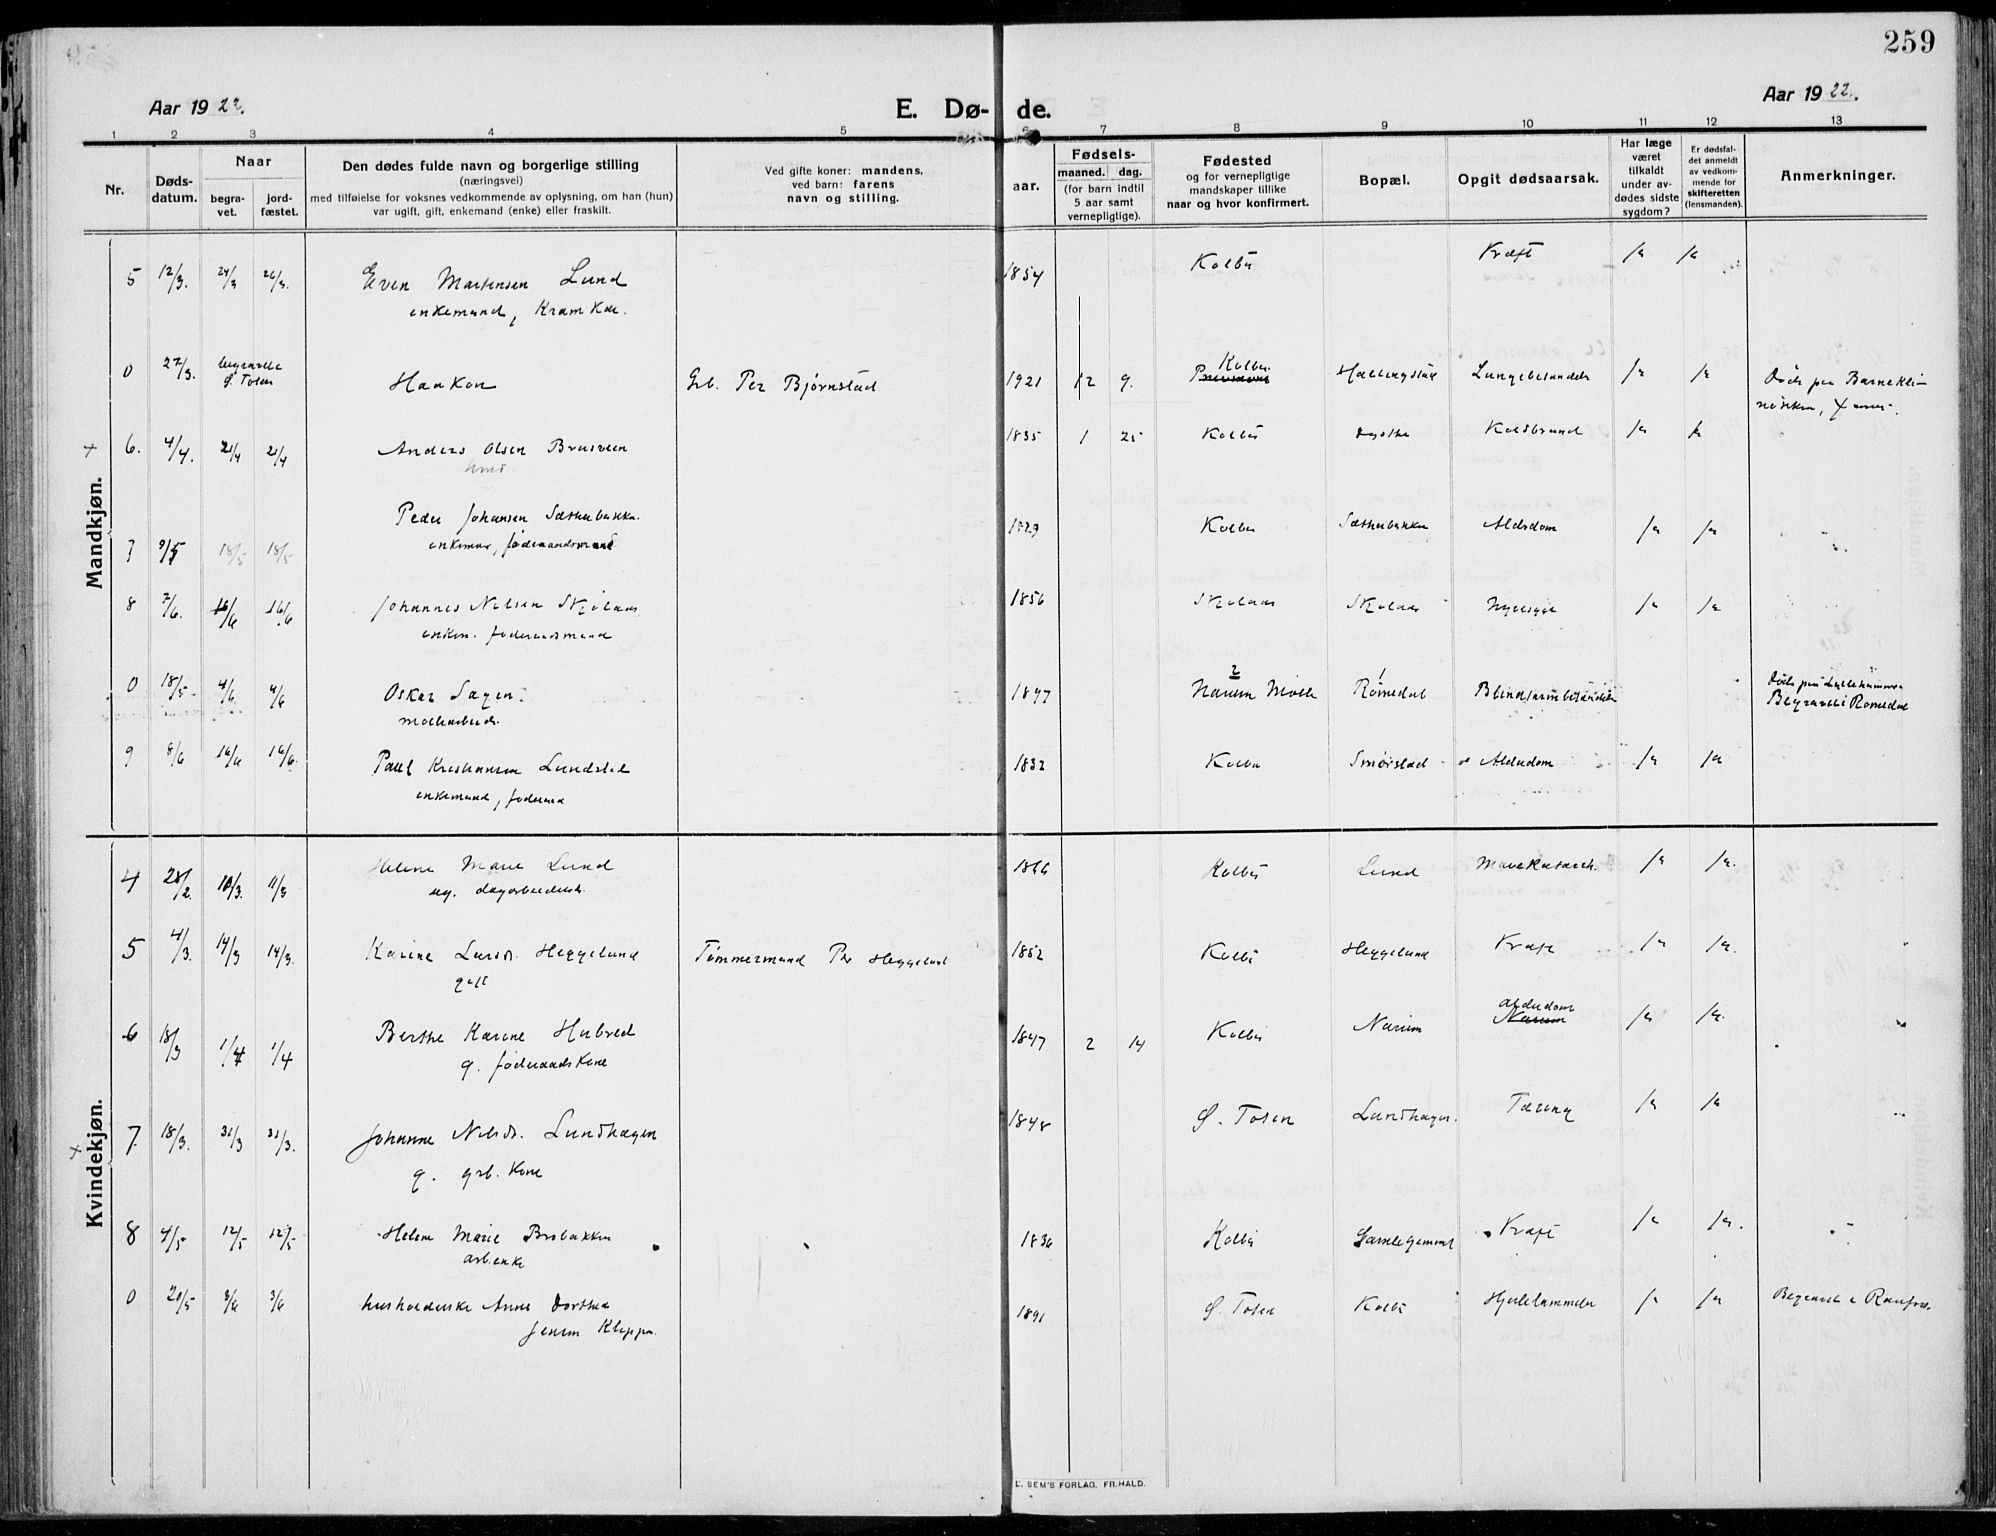 259
Aar 1922.
E. Dø- de.
Aar 1922.
1 2 3 4 5 6 7 8 9 10 11 12 13
Nr.
Døds-
datum.
Naar
begra-
vet.
jord-
fæstet.
Den dødes fulde navn og borgerlige stilling
(næringsvei)
med tilføielse for voksnes vedkommende av oplysning, om han (hun)
var ugift, gift, enkemand (enke) eller fraskilt.
Ved gifte koner: mandens,
ved barn: farens
navn og stilling.
aar.
Fødsels-
maaned. dag.
(for barn indtil
5 aar samt
vernepligtige).
Fødested
og for vernepligtige
mandskaper tillike
naar og hvor konfirmert.
Bopæl.
Opgit dødsaarsak.
Har læge
været
tilkaldt
under av-
dødes sidste
sygdom?
Er dødsfal-
det anmeldt
av vedkom-
mende for
skifteretten
(lensmanden).
Anmerkninger.
Mandkjøn.
5 12/3. 24/3 26/3. Even Martinsen Lund 1854 Kolbu Kræft ja ja
enkemand,
0 27/3. Haakon Gb. Per Bjørnstad 1921 12 9. Kolbu ja ja
Ø. Toten
6. 4/4. 21/4 21/4 Anders Olsen Brusveen 1835 1 25 Kolbu ja ja
7 9/5 18/5 18/5 Peder Johansen 1829 Kolbu Alderdom ja ja
8 7/6. 16/6 16/6 Johannes Nilsen Skjølaas 1856 Skjølaas Skjølaas Nyresyge ja ja
enkem. føderaadsmand
0 18/5 4/6 4/6 Oskar Sagen. 1897 Romedal Blindtarmbetændelse
Begravet i Romedal
9 8/6 16/6 16/6. Paul Kristiansen Lundsted 1832 Kolbu Smørstad Alderdom ja ja
enkemand, føderaad
Kvindekjøn.
4 28/2. 10/3. 11/3 Helene Marie Lund 1866 Kolbu Lund Mavekatarrh. ja ja.
ug. dagarbeidersk.
5 4/3. 14/3 14/3. Karine Larsd. Heggelund Tømmermand Per Heggelund 1852 Kolbu Heggelund Kræft ja ja.
gift
6 18/3 1/4 1/4 Berthe Karine Hubred 1847 2 14 Kolbu Narum Alderdom ja ja.
g. føderaads Kone
7 18/3. 31/3 31/3. Johanne Nilsd. Lundhagen 1848 Ø. Toten Lundhagen. Tæring ja ja
g. grb. Kone
8 4/5 12/5 12/5 Helene Marie Brobakken 1836 Kolbu Kræft ja ja.
arb.enke
0 20/5 3/6 3/6 husholderske Anne Dorthea 1891 Ø. Toten Kolbu ja ja
E. SEM'S FORLAG, FR.HALD.